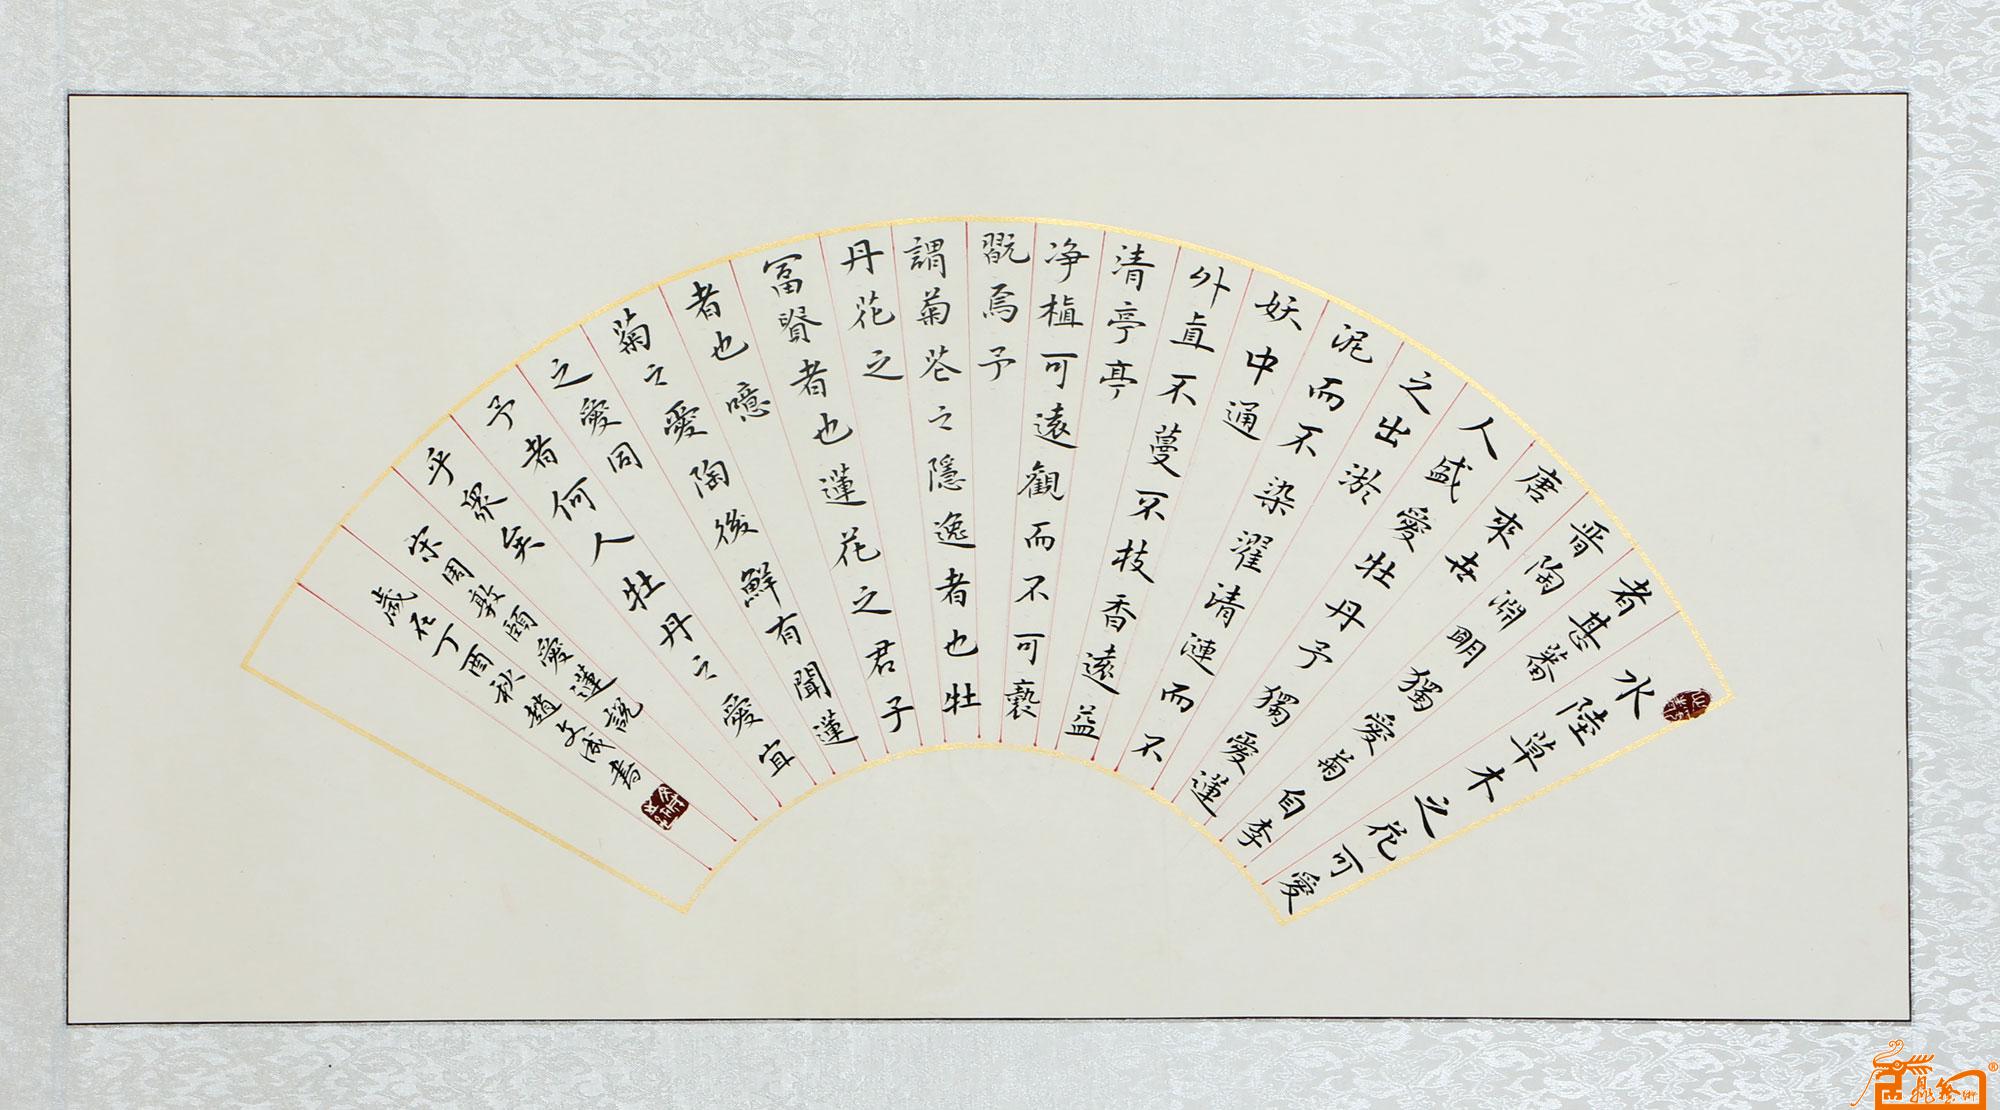 水陸草木之花可愛
者甚蕃
晋陶淵明獨愛菊自李
唐來世
人盛愛牡丹予獨愛蓮
之出淤
泥而不染濯清漣而不
妖中通
外直不蔓不枝香遠益
清亭亭
净植可遠觀而不可褻
翫焉予
謂菊花之隱逸者也牡
丹花之
富賢者也蓮花之君子
者也噫
菊之愛陶後鮮有聞蓮
之愛同
予者何人牡丹之愛宜
乎眾矣
宋周敦頤愛蓮說
歲在丁酉秋趙文成書